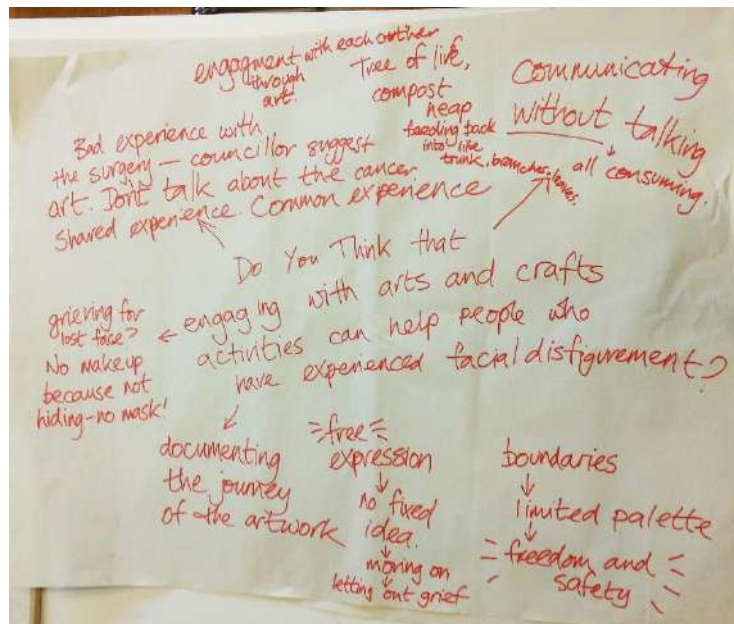 engagment with each other
through
art.
Tree of life,
compost
heap
feeding back
into life
trunk, branches, leaves.
Communicating
without talking
all consuming.
Bad experience with
the surgery – councillor suggest
art. Dont talk about the cancer.
Shared experience. Common experience
Do You Think that
engaging with arts and crafts
activities can help people who
have experienced facial disfigurement?
grieving for
lost face?
No makeup
because not
hiding – no mask!
documenting
the journey
of the artwork
free
expression
no fixed
idea.
moving on
letting out grief
boundaries
limited palette
freedom and
safety